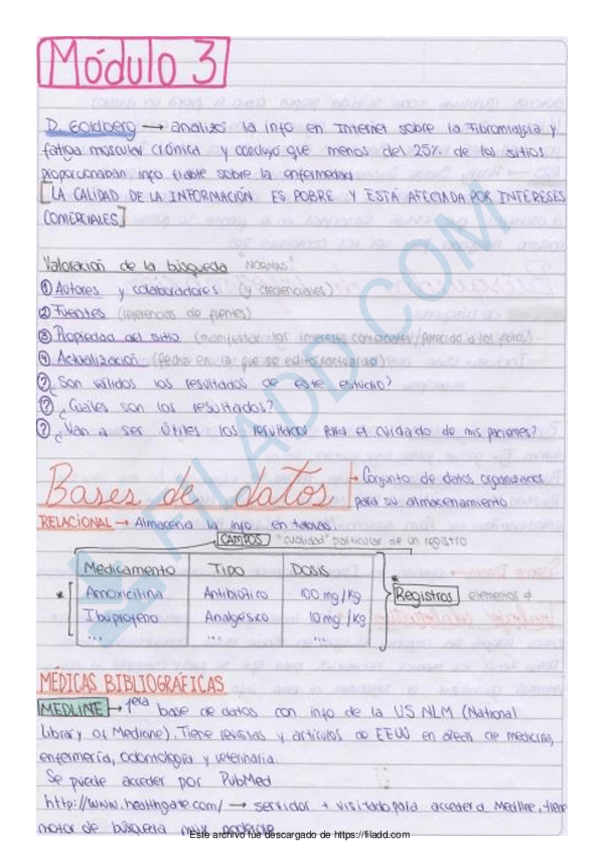 Módulo 3
D. Goldberg → analizó la info en Internet sobre la Fibromialgia y
fatiga muscular crónica y concluyó que menos del 25% de los sitios
proporcionaban info fiable sobre la enfermedad
[LA CALIDAD DE LA INFORMACIÓN ES POBRE Y ESTÁ AFECTADA POR INTERESES
COMERCIALES]
Valoración de la búsqueda "NORMAS":
① Autores y colaboradores (y credenciales)
② Fuentes (referencias de fuentes)
③ Propiedad del sitio (manifestar los intereses comerciales/parecido a los
④ Actualización (fecha en la que se editó
? ¿Son válidos los resultados de este estudio?
? ¿Cuáles son los resultados?
? ¿Van a ser útiles los resultados para el cuidado de mis pacientes?
Bases de datos → Conjunto de datos organizados
para su almacenamiento
RELACIONAL → Almacena la info en tablas.
CAMPOS "cualidad" particular de un registro
Medicamento Tipo Dosis
* Amoxicilina Antibiótico 100 mg/kg * Registros elementos ≠
Ibuprofeno Analgésico 10 mg/kg
... ...
MÉDICAS BIBLIOGRÁFICAS
MEDLINE → 1era base de datos con info de la US NLM (National
Library of Medicine). Tiene revistas y artículos de EEUU en áreas de medicina,
enfermería, odontología y veterinaria.
Se puede acceder por PubMed
http://www.healthgate.com/ → servidor + visitado para acceder a Medline, tiene
motor de búsqueda muy
Este archivo fue descargado de https://filadd.com
FILADD.COM